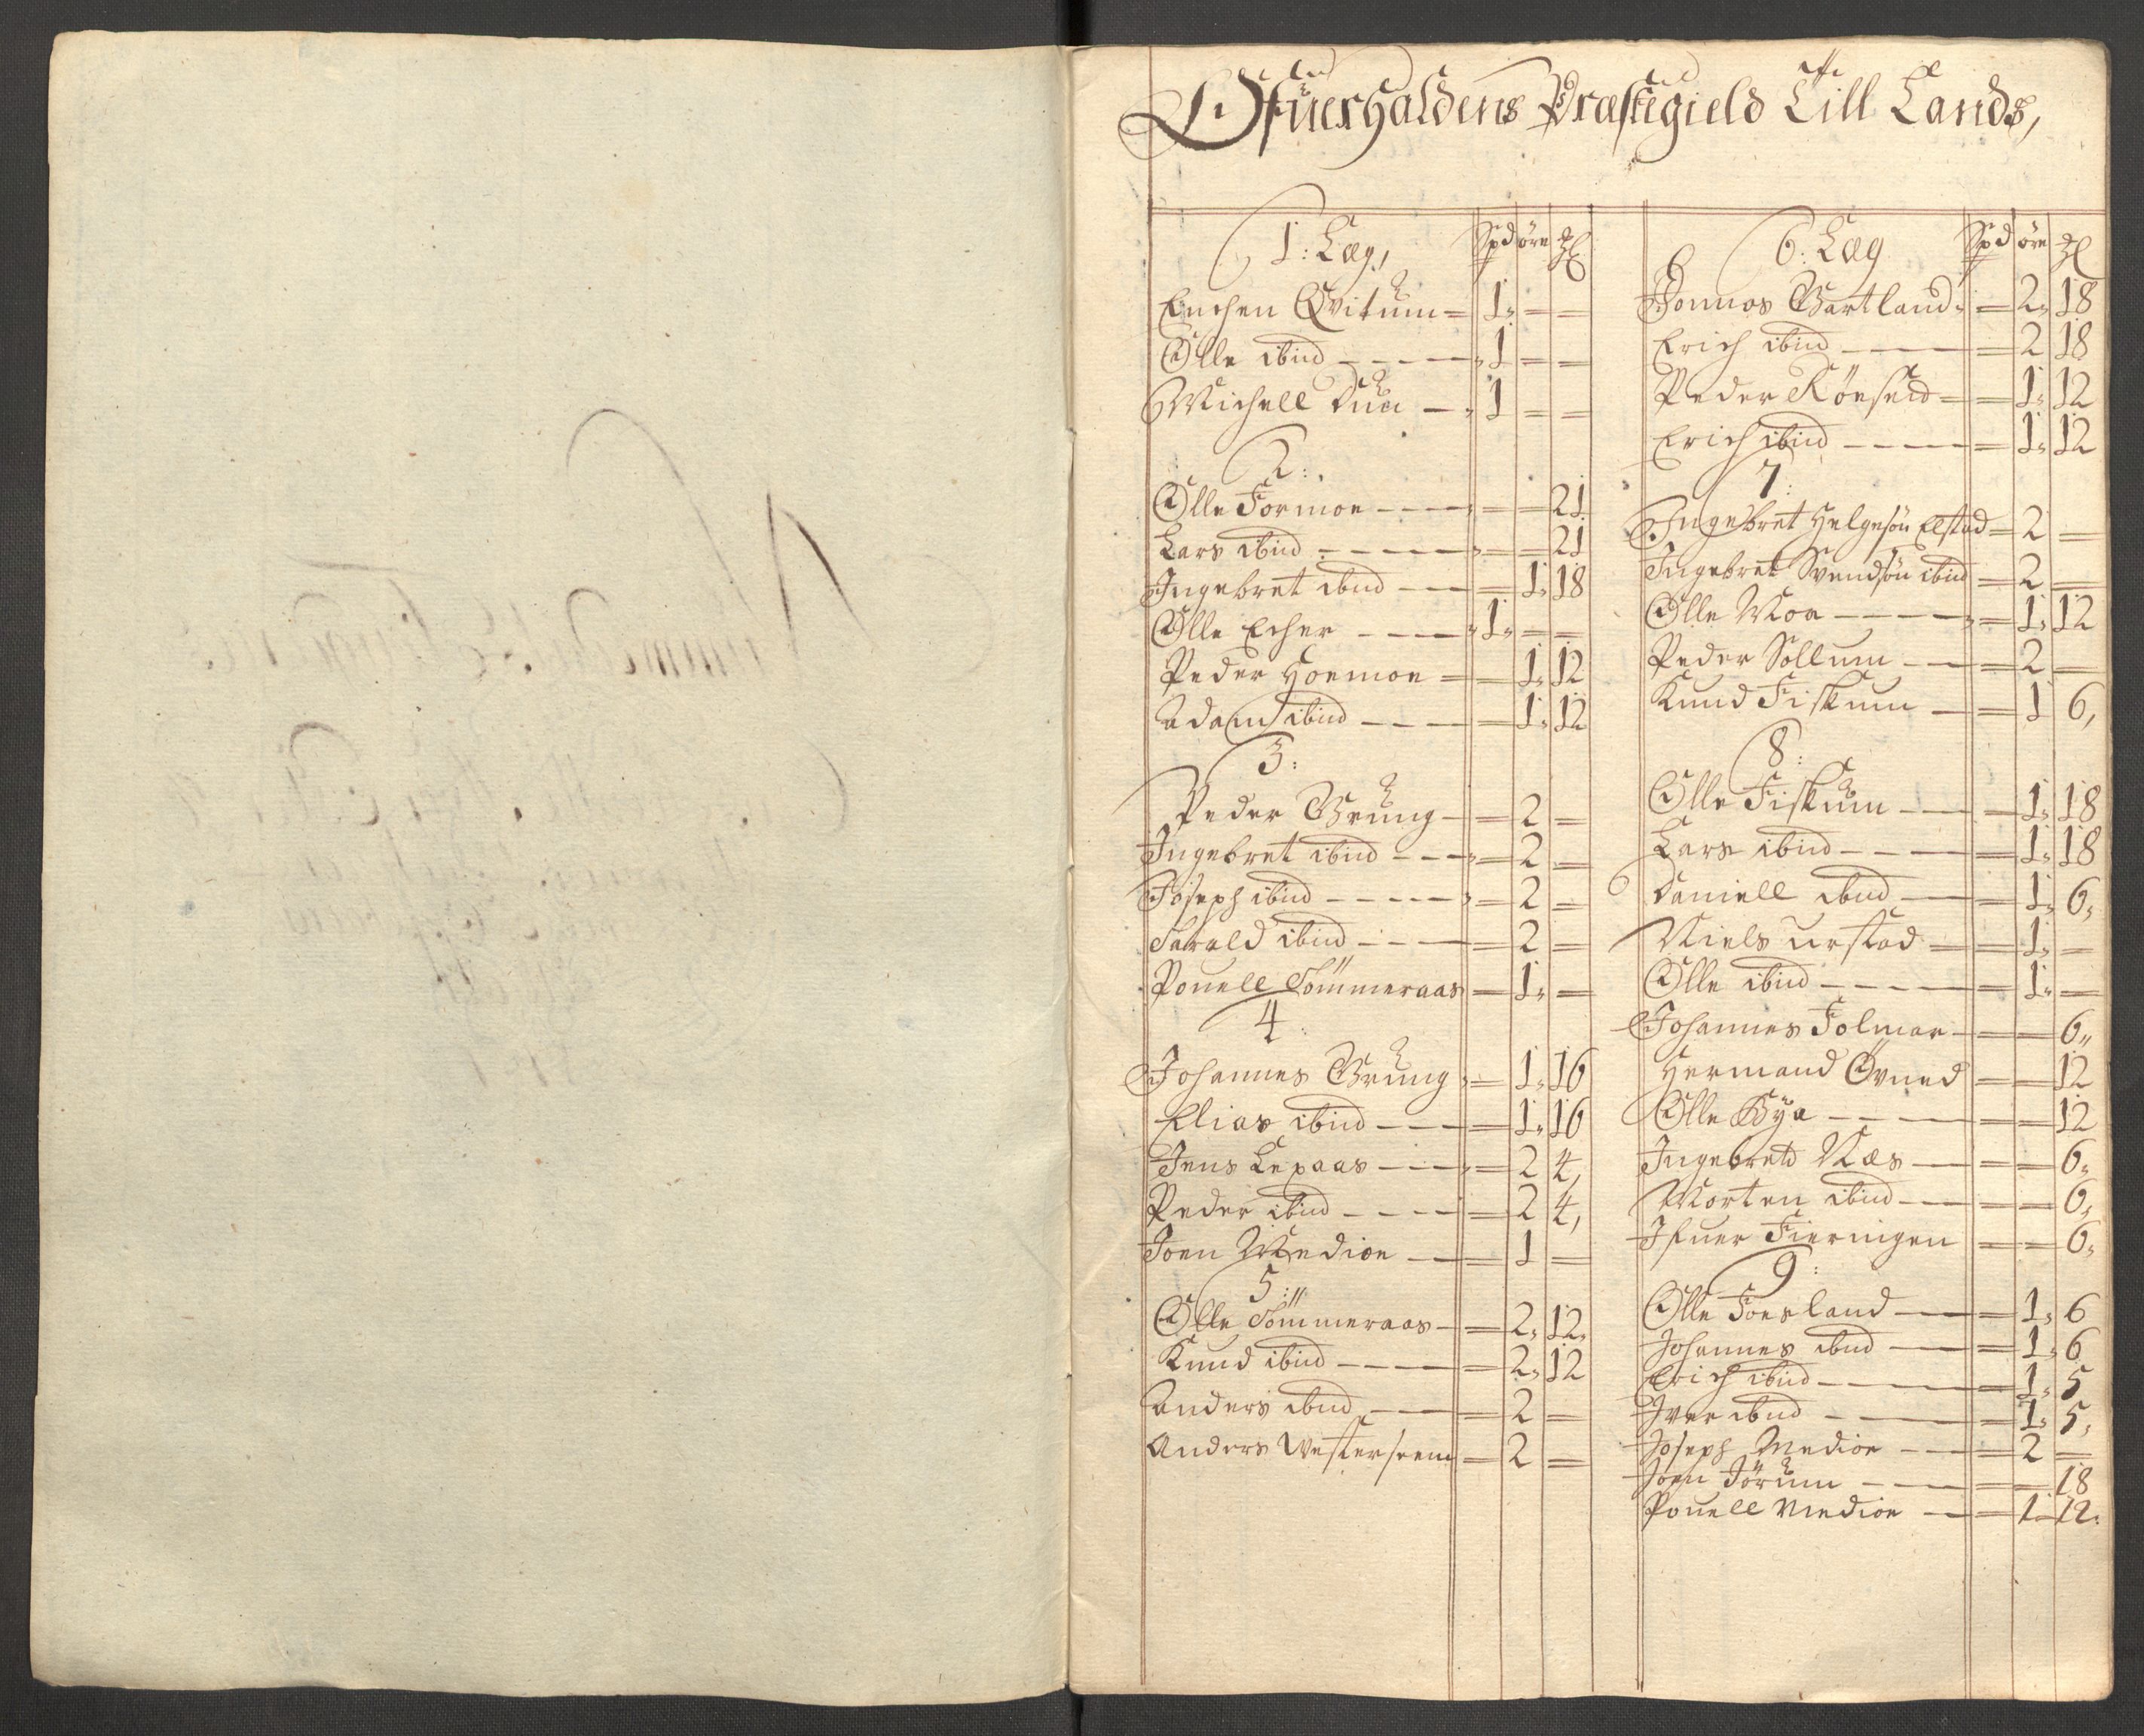 Ofuerhaldens Præstegield Till Lands,
1: Læg,	Spd	öre	mk
Enchen Qvitum	1
Olle ibid	1
Michell Duu	1
2:
Olle Formoe	21
Lars ibid	21
Ingebret ibid	1	18
Olle Echer	1
Peder Hoemoe	1	12
Adam ibid	1	12
3:
Peder Grung	2
Ingebret ibid	2
Joseph ibid	2
Harald ibid	2
Pouell Tömmeraas	1
4:
Johannes Grung	1	16
Elias ibid	1	16
Jens Lexaas	2	4,
Peder ibid	2	4,
Joen Medioe	1
5:
Olle Tömmeraas	2	12
Knud ibid	2	12
Anders ibid	2
Anders Westerseem	2
6: Læg	Spd	öre	mk
Tommos Gartland	2	18
Erich ibid	2	18
Peder Rönseid	1	12
Erich ibid	1	12
7:
Ingebret Helgesön Elstad	2
Ingebret Svendsön ibid	2
Olle Moa	1	12
Peder Sollum	2
Knud Fiskum	1	6,
8:
Olle Fiskum	1	18
Lars ibid	1	18
Daniell ibid	1	6
Niels Urstad	1
Olle ibid	1
Johannes Tolmar	6
Hermand Övned	12
Olle Rya	12
Ingebretd Næs	6
Morten ibid	6
Ifuer Fieringen	6
9:
Olle Foesland	1	6
Johannes ibid	1	6
Erich ibid	1	5
Iver ibid	1	5
Joseph Medioe	2
Joen Jörum	18
Pouell Medioe	1	12